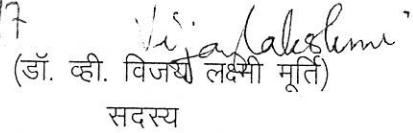 7
Vijayalakshmi
(डॉ. व्ही. विजया लक्ष्मी मूर्ति)
सदस्य